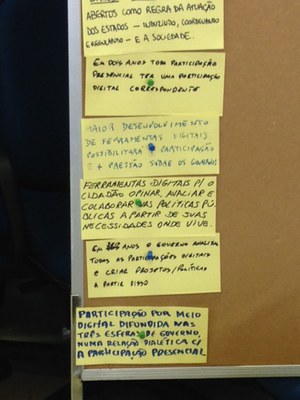 ABERTOS COMO REGRA DA ATUAÇÃO
DOS ESTADOS - INDUZINDO, COORDENANDO
E REGULANDO - E A SOCIEDADE.
EM DOIS ANOS TODA PARTICIPAÇÃO
PRESENCIAL TER UMA PARTICIPAÇÃO
DIGITAL CORRESPONDENTE
MAIOR DESENVOLVIMENTO
DE FERRAMENTAS DIGITAIS
POSSIBILITARÁ + PARTICIPAÇÃO
E + PRESSÃO SOBRE OS GOVERNOS
FERRAMENTAS DIGITAIS P/ O
CIDADÃO OPINAR, AVALIAR E
COLABORAR NAS POLÍTICAS PÚ-
BLICAS A PARTIR DE SUAS
NECESSIDADES ONDE VIVE.
EM ANOS O GOVERNO ANALISA
TODAS AS PARTICIPAÇÕES DIGITAIS
E CRIAR PROJETOS/POLÍTICAS
A PARTIR DISSO
PARTICIPAÇÃO POR MEIO
DIGITAL DIFUNDIDA NAS
TRÊS ESFERAS DE GOVERNO,
NUMA RELAÇÃO DIALÉTICA C/
A PARTICIPAÇÃO PRESENCIAL